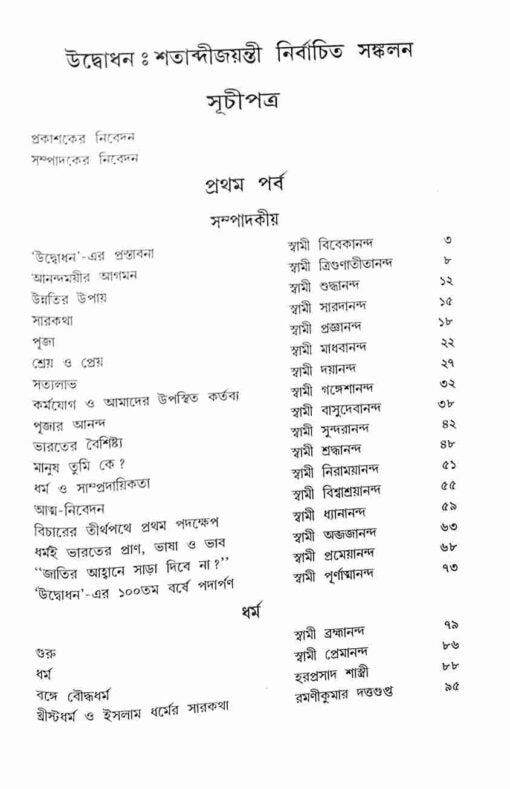 উদ্বোধন ঃ শতাব্দীজয়ন্তী নির্বাচিত সঙ্কলন
সূচীপত্র
প্রকাশকের নিবেদন
সম্পাদকের নিবেদন
প্রথম পর্ব
সম্পাদকীয়
‘উদ্বোধন’-এর প্রস্তাবনা স্বামী বিবেকানন্দ ৩
আনন্দময়ীর আগমন স্বামী ত্রিগুণাতীতানন্দ ৮
উন্নতির উপায় স্বামী শুদ্ধানন্দ ১২
সারকথা স্বামী সারদানন্দ ১৫
পূজা স্বামী প্রজ্ঞানন্দ ১৮
শ্রেয় ও প্রেয় স্বামী মাধবানন্দ ২২
সত্যলাভ স্বামী দয়ানন্দ ২৭
কর্মযোগ ও আমাদের উপস্থিত কর্তব্য স্বামী গঙ্গেশানন্দ ৩২
পূজার আনন্দ স্বামী বাসুদেবানন্দ ৩৮
ভারতের বৈশিষ্ট্য স্বামী সুন্দরানন্দ ৪২
মানুষ তুমি কে? স্বামী শ্রদ্ধানন্দ ৪৮
ধর্ম ও সাম্প্রদায়িকতা স্বামী নিরাময়ানন্দ ৫১
আত্ম-নিবেদন স্বামী বিশ্বাশ্রয়ানন্দ ৫৫
বিচারের তীর্থপথে প্রথম পদক্ষেপ স্বামী ধ্যানানন্দ ৫৯
ধর্মই ভারতের প্রাণ, ভাষা ও ভাব স্বামী অব্জজানন্দ ৬৩
“জাতির আহ্বানে সাড়া দিবে না?” স্বামী প্রমেয়ানন্দ ৬৮
‘উদ্বোধন’-এর ১০০তম বর্ষে পদার্পণ স্বামী পূর্ণাত্মানন্দ ৭৩
ধর্ম
গুরু স্বামী ব্রহ্মানন্দ ৭৯
ধর্ম স্বামী প্রেমানন্দ ৮৬
বঙ্গে বৌদ্ধধর্ম হরপ্রসাদ শাস্ত্রী ৮৮
খ্রীস্টধর্ম ও ইসলাম ধর্মের সারকথা রমণীকুমার দত্তগুপ্ত ৯৫